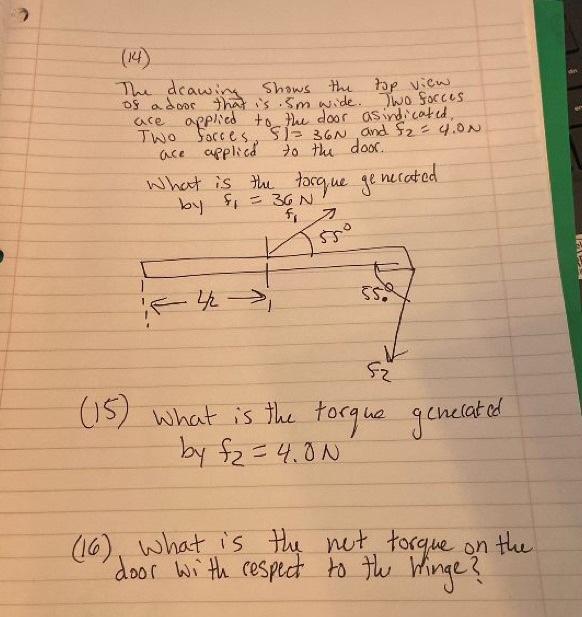 (14)
The drawing shows the top view
of a door that is .5m wide. Two forces
are applied to the door as indicated.
Two forces, f1 = 36N and f2 = 4.0N
are applied to the door.
What is the torque generated
by f1 = 36 N
f1
55°
L/2
55°
f2
(15) What is the torque generated
by f2 = 4.0N
(16) What is the net torque on the
door with respect to the hinge?